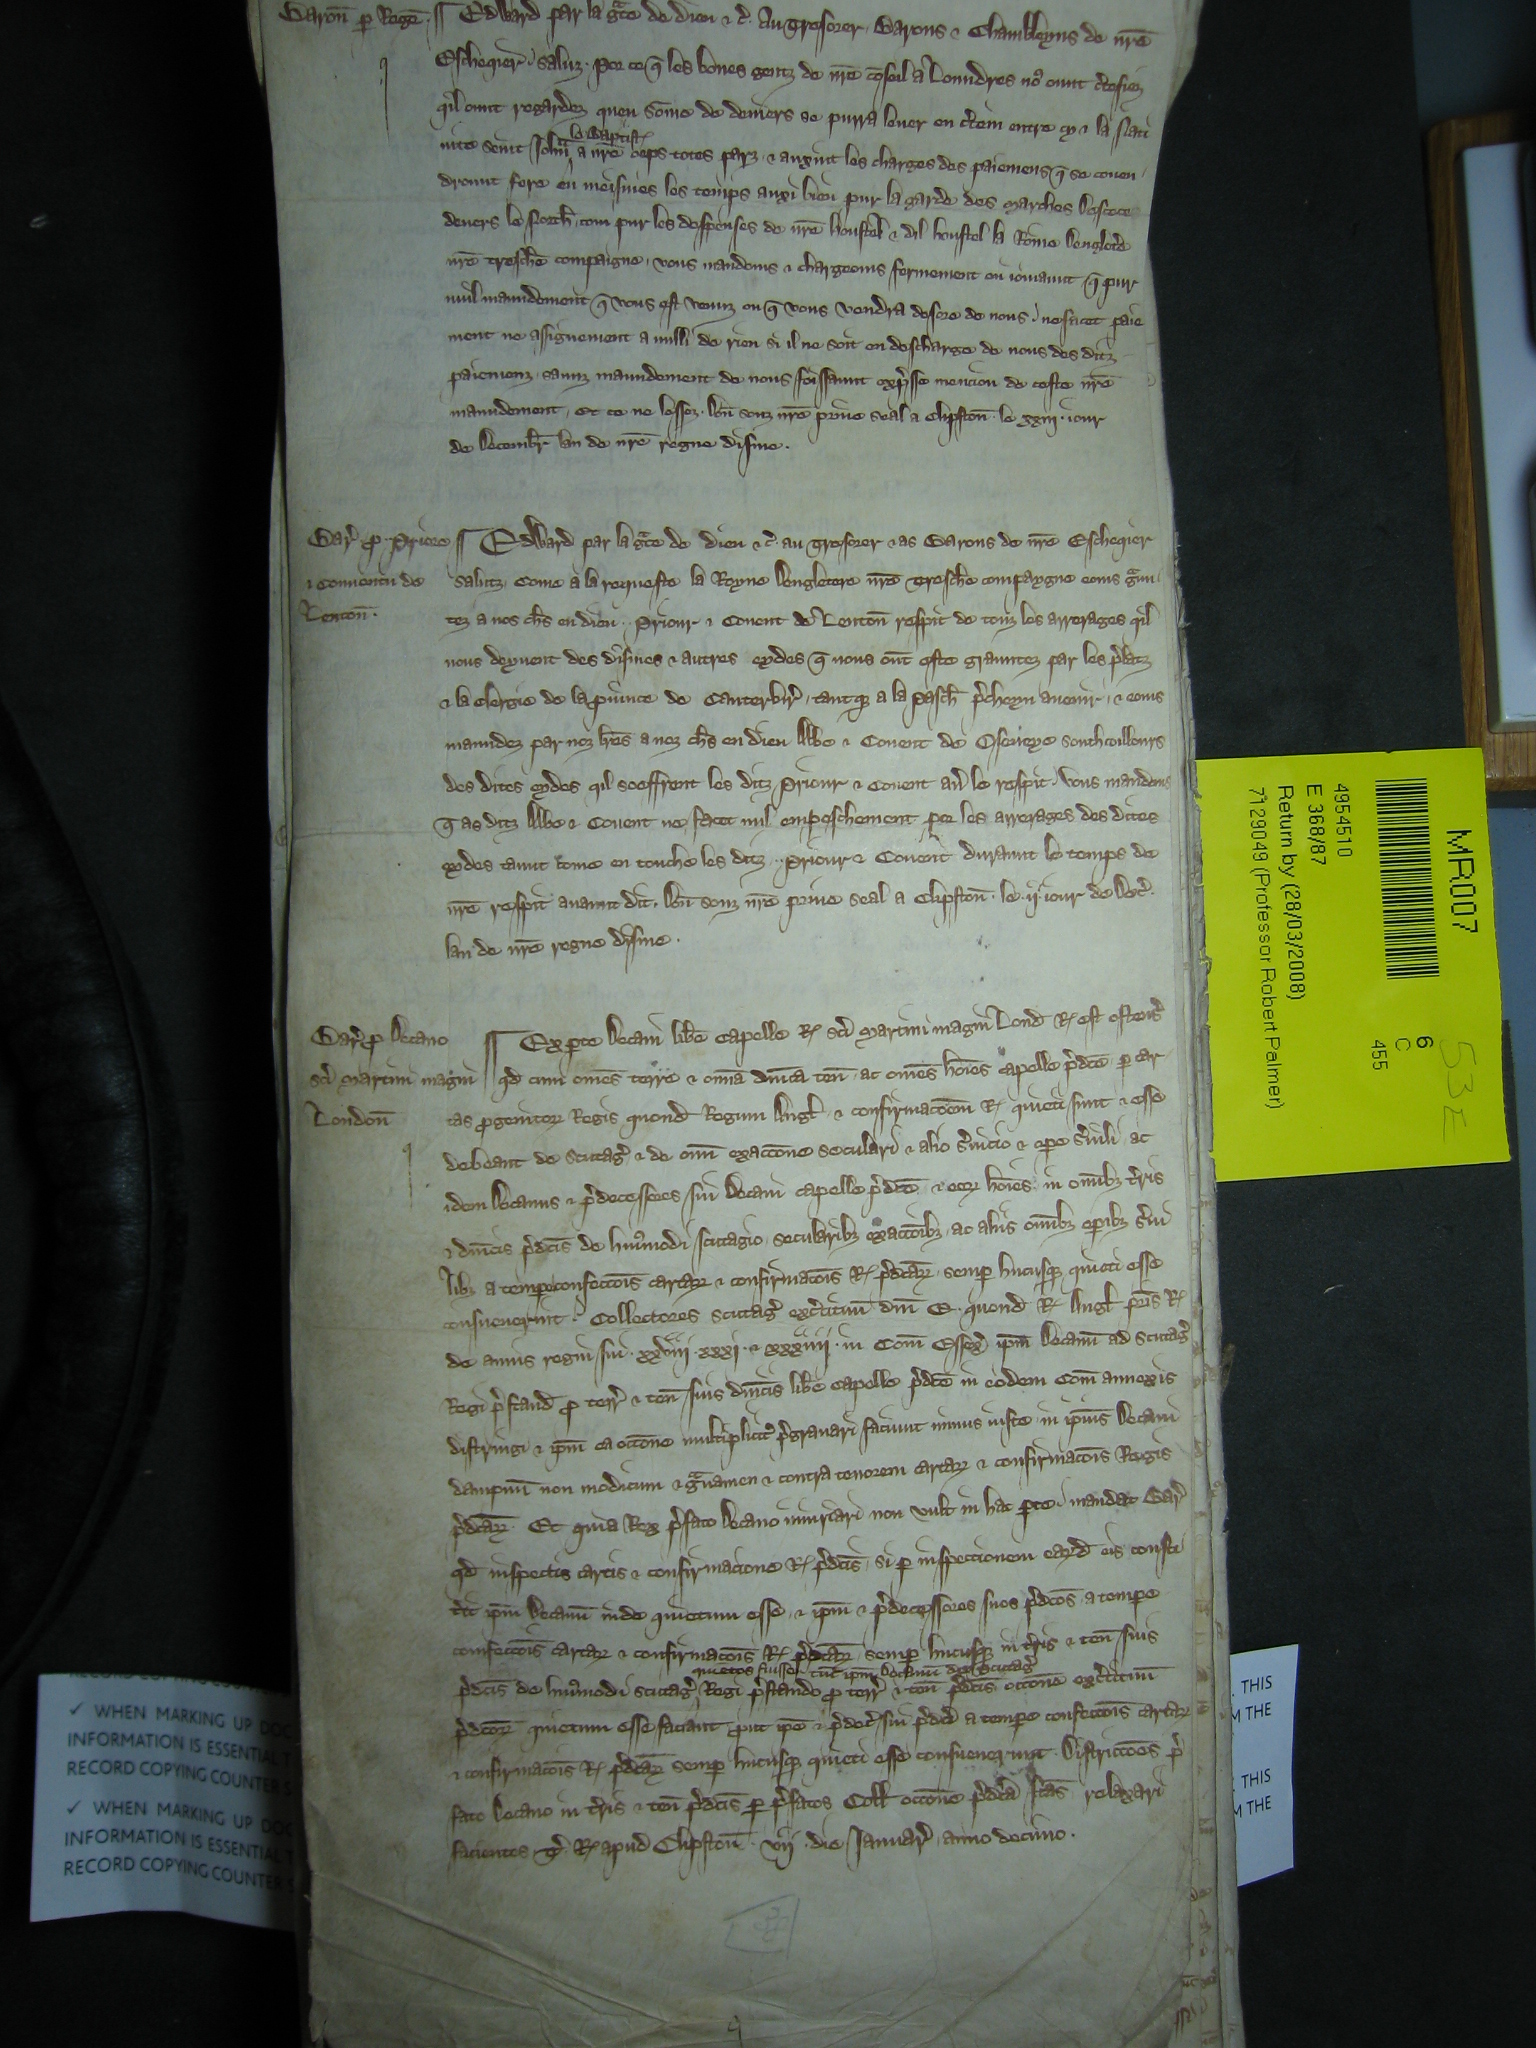 Baron̄ p̱ Regē · ¶ Edward par la gr̄ce de dieu ⁊ c̃. Au Tresorer, Barons ⁊ Chambleyns de nr̄e
Escheqier saluz. Por ce q̄ les bones gentz de nr̄e cōseil a Loundres no9 ount
qil ount regardez queu sōme de deniers se purra lever en entre cy ⁊ la Nati
uite Seint Joħn le Baptist̄ a nr̄e oeps totes parz ⁊ auxint les charges des paiemens q̄ se coven
dront fere en meismes les temps auxi bien pur la garde des marches Descoce
devers le North̄, com pur les despenses de nr̄e houstel ⁊ dil houstel la Roine Dengletr̄e
nr̄e treschēr compaigne, vous maundoms ⁊ chargeoms fermement q̄ pur
nul maundement q̄ vous est venuz ou q̄ vous vendra desore de nous ne facet paie
ment ne assignement a nulli de rien si il ne soit en descharge de nous des ditz
paiemenz, saunz maundement de nous feissaunt exp̄sse mencion de ceste nr̄e
maundement, Et ce ne lessez. Don̄ souz nr̄e prive seal a Clipston̄ le xxiij iour
de Decembr̄ lan de nr̄e regne disme.
Bar̄ p̱ Priore ¶ Edward par la gr̄ce de dieu ⁊ c̃. au Tresorer ⁊ as Barons de nr̄e Escheqier
⁊ Conventu de saluz. Come a la requeste la Royne Dengletere nr̄e treschēr compaygne eoms gr̄un
Lenton̄. tez a nos ch̄s en dieu .. Priour ⁊ Covent de Lenton̄ respit de touz les arrerages qil
nous deyvent des dismes ⁊ autres eydes q̄ nous ōnt este grauntez par les p̄latz
⁊ la clergie de la p̱vince de Canterbir̄, tantq̄ a la Pasch̄ p̄cheyn avenir, ⁊ eoms
maundez par noz lr̄es a noz ch̄s en dieu Abbe ⁊ Covent de Oseneye southcoillours
des dites eydes qil soeffrent les ditz Priour ⁊ Covent av̄ le respit. vous maundoms
q̄ as ditz Abbe ⁊ Covent ne facet nul empeschement por les arrerages des dites
eydes taunt come en touche les ditz .. Priour ⁊ Covent duraunt le temps de
nr̄e respit avaunt dit. Don̄ souz nr̄e prive seal a Clipston̄ le ij iour de Dec̄.
lan de nr̄e regne disme.
Bar̄ p̱ Decano ¶ Ex p̱te Decani lib̄e Capelle R̶ sc̄i Martini magni Lond̄ R̶ est ostens̄
sc̄i Martini magni qd̄ cum om̄es terre ⁊ om̄ia dn̄ica ten̄ ac om̄es hōies capelle p̄dc̄e p̱ car
London̄ tas p̱genitoꝝ Regis quond̄ Regum Angl̄ ⁊ confirmac̄oem R̶ quieti sunt ⁊ esse
debeant de scutaḡ ⁊ de om̄i exacc̄one seculari ⁊ alio s̄vicio ⁊ op̱e s̄vili ac
idem Decanus ⁊ p̄decessores sui Decani capelle p̄dc̄e ⁊ eoꝝ hōies in om̄ibꝫ t̄ris
⁊ dn̄icis p̄dc̄is de hui9modi scutagio, secularibꝫ exacc̄oibꝫ ac aliis om̄ibꝫ op̱ibꝫ s̄vi
libꝫ a temp̱e confecc̄ois cartaꝝ ⁊ confirmac̄ois R̶ p̄dc̄aꝝ semp̱ hucusqꝫ quieti esse
consueverunt. Collectores scutaḡ exc̄ituum dn̄i E. quond̄ R̶ Angl̄ pr̄is R̶
de annis regni sui xxviij · xxxj · ⁊ xxxiiij in Com̄ Essex̄ ip̄m Decanū ad scutaḡ
Regi p̄stand̄ p̱ terr̄ ⁊ ten̄ suis dn̄icis lib̄e Capelle p̄dc̄e in eodem Com̄ annexis
distringi ⁊ ip̄m ea occ̄one multiplicit̄ p̄gravari faciunt minus iuste in ip̄ius Decani
dampnū non modicum ⁊ gr̄vamen ⁊ contra tenorem cartaꝝ ⁊ confirmac̄ois Regis
p̄dc̄aꝝ. Et quia Rex p̄fato Decano iniuriari non vult in hac p̱te mandat Bar̄
qd̄ inspectis cartis ⁊ confirmacione R̶ p̄dc̄is, si p̱ inspectionem eis consti
t̄it ip̄m Decanū inde quietum esse ⁊ ip̄m ⁊ p̄decessores suos p̄dc̄os a temp̱e
confecc̄ois cartaꝝ ⁊ confirmac̄ois R̶ p̄dc̄aꝝ semp̱ hucusqꝫ in t̄ris ⁊ ten̄ suis
quietos fuisse tūc ip̄m Decanū de scutaḡ
p̄dc̄is de hui9modi scutaḡ Regi p̄stando p̱ terr̄ ⁊ ten̄ p̄dc̄is occ̄one exc̄ituum
p̄dc̄oꝝ quietum esse faciant p̱ut ip̄e ⁊ p̄dec̄ sui p̄dc̄i a temp̱e confecc̄ois cartaꝝ
⁊ confirmac̄ois R̶ p̄dc̄aꝝ semp̱ hucusqꝫ quieti esse consueverunt. Districc̄oes p̄
fato Decano in t̄ris ⁊ ten̄ p̄dc̄is p̱ p̄fatos Coll̄ occ̄one p̄dc̄a fc̄as relaxari
facientes. T. R̶ apud Clipston̄ vij die Januar̄ anno decimo.
MR007
4954510
E 368/87
Return by (28/03/2008)
7129049 (Professor Robert Palmer)
6
C
455
53E
RECORD COPYING COUNTER
✓ WHEN MARKING UP DOC
INFORMATION IS ESSENTIAL T
RECORD COPYING COUNTER S
✓ WHEN MARKING UP DOC
INFORMATION IS ESSENTIAL
RECORD COPYING COUNTER S
THIS
M THE
THIS
M THE